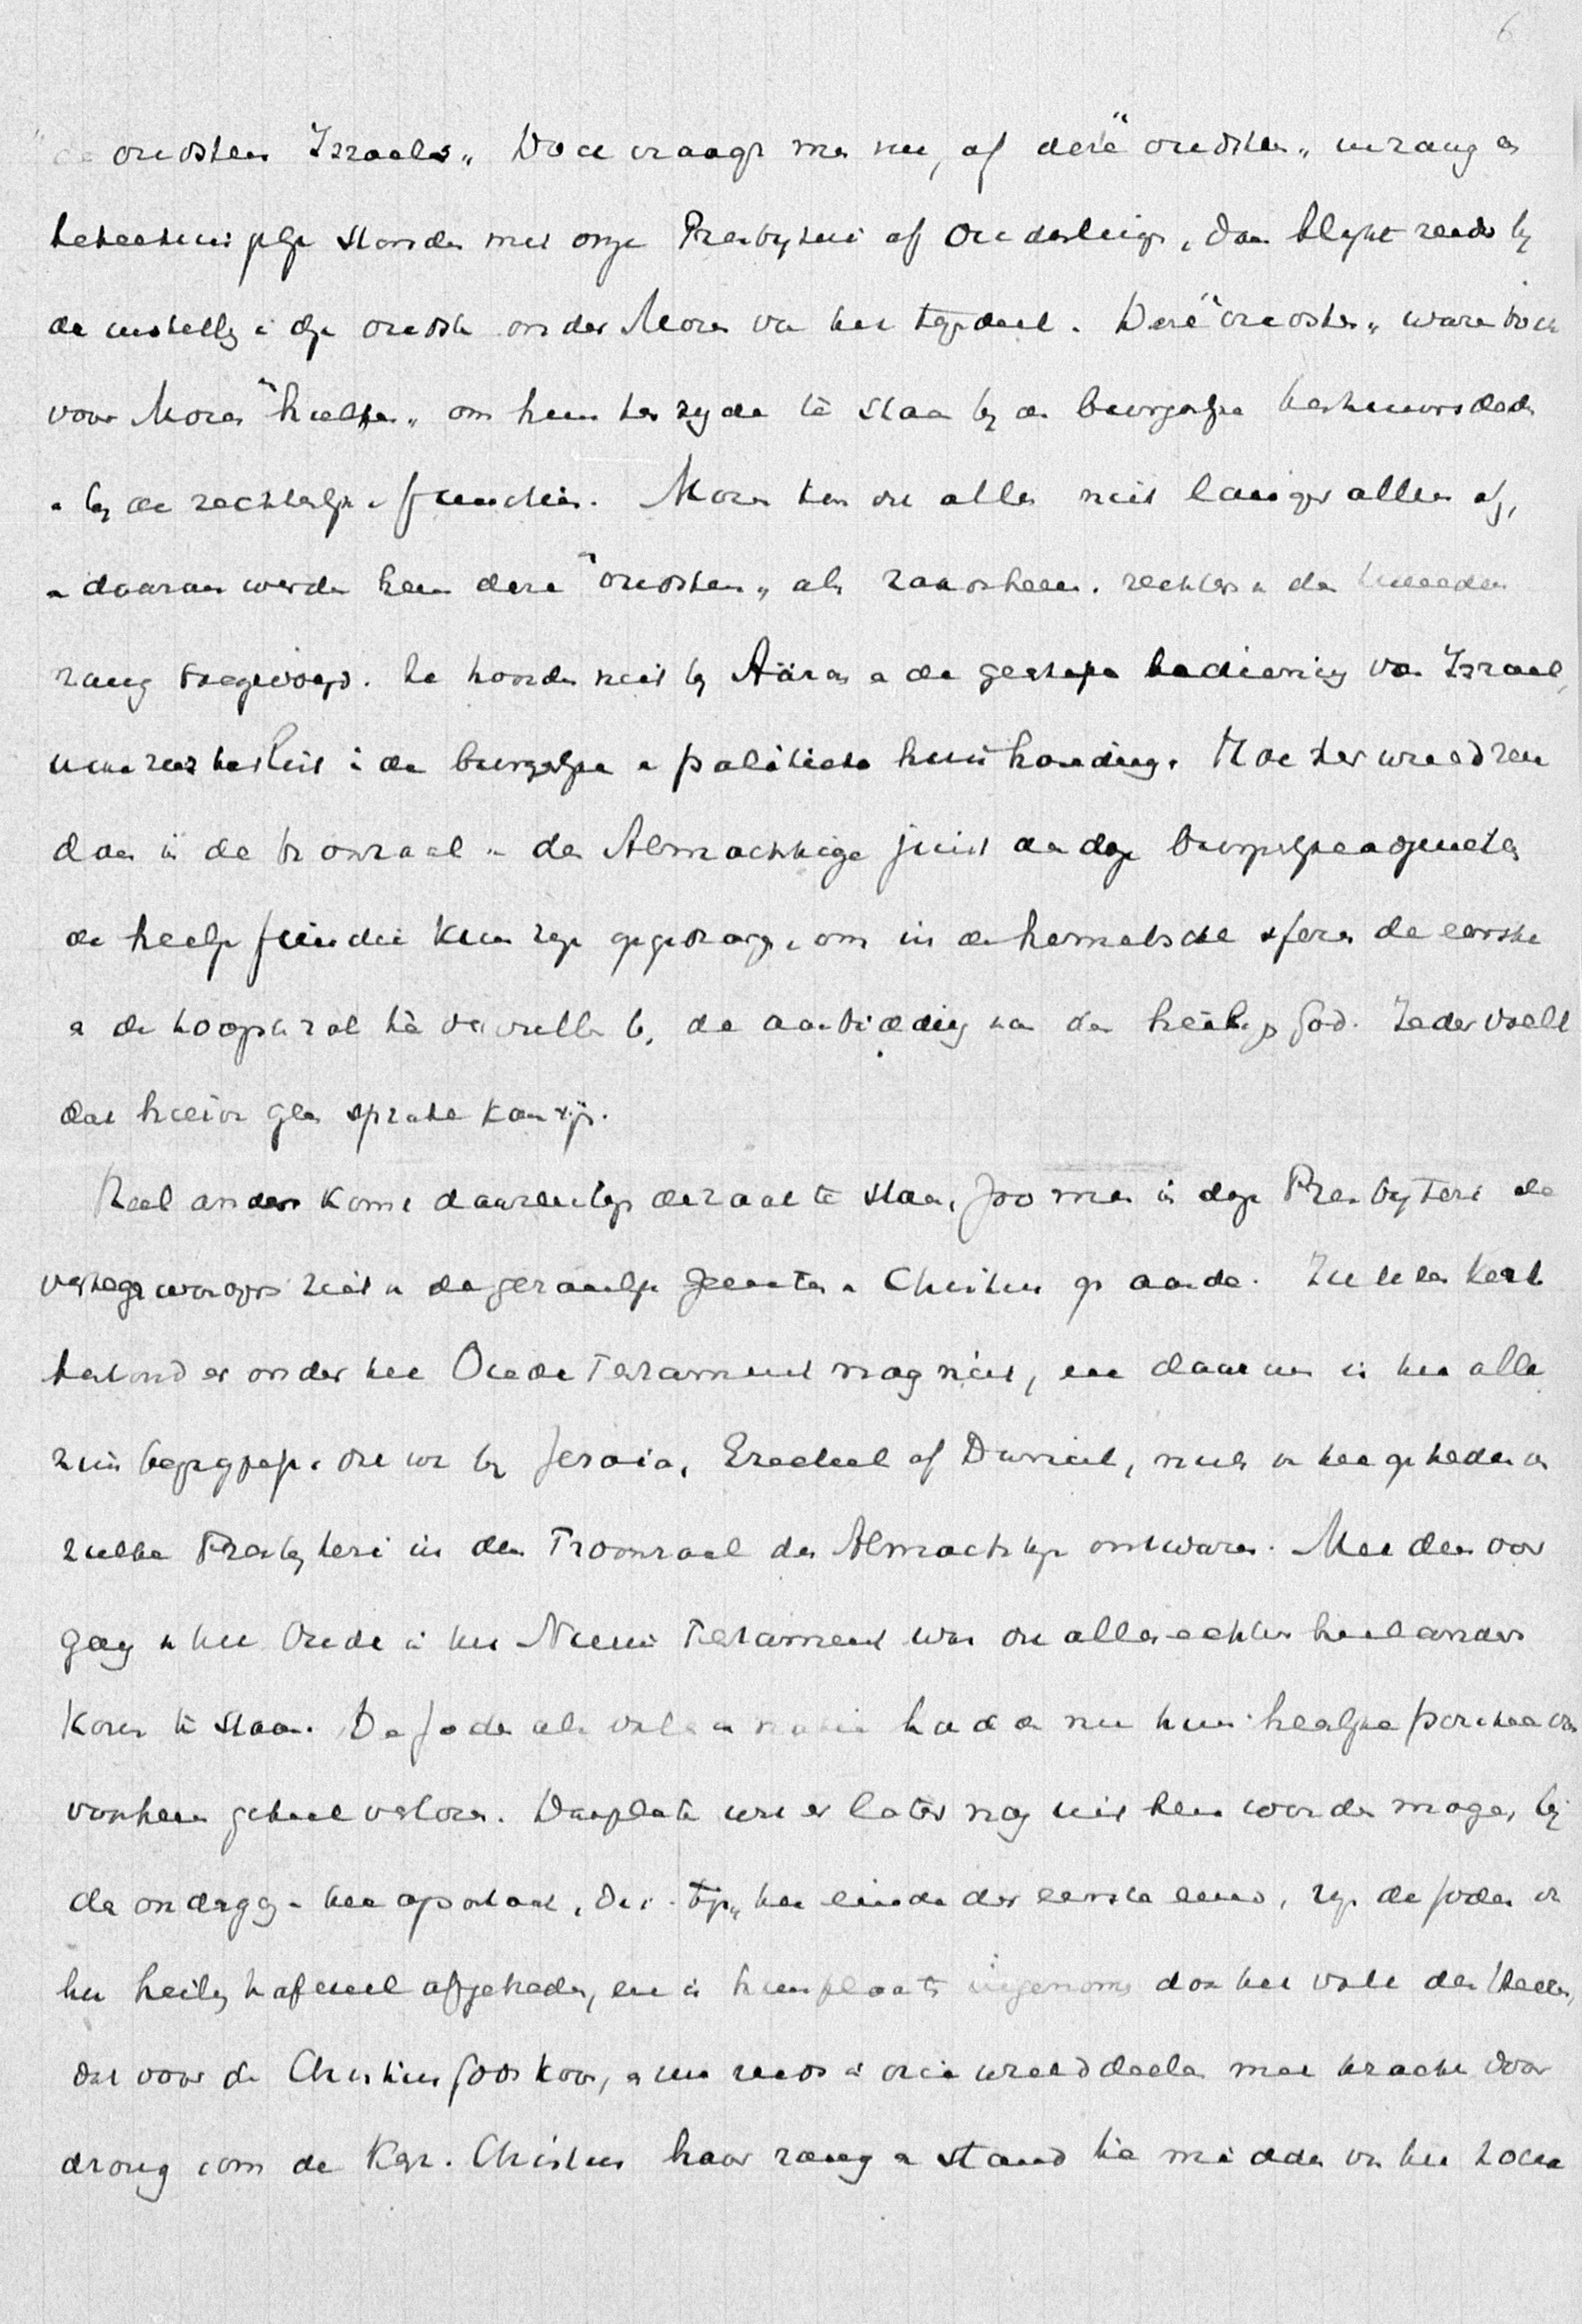 6
"de oudsten Israels„ Doch vraagt men nu, of deze "oudsten„ in rang en
beteekenis gelijk stonden met onze Presbyters of Ouderlingen, dan blijkt reeds bij
de instelling dezer oudsten onder Mozes van het tegendeel. Deze "oudsten„ waren toch
voor Mozes "hulpen„ om hem ter zijde te staan bij de burgerlijke bestuursdaden
en bij de rechterlijke functiën. Mozes kon dit alles niet langer alleen af,
en daarom werden hem deze "oudsten„ als raadsheeren, rechters in den tweeden
rang toegevoegd. Ze hoorden niet bij Aäron en de geestelijke bediening van Israel,
maar zeer beslist in de burgerlijke en politieke huishouding. Hoe ter wereld zou
dan in de troonzaal van den Almachtige juist aan deze burgerlijke
de heilige functie kunnen zijn opgedragen, om in de hemelsche sferen de eerste
en de hoogste rol te vervullen bij de aanbidding van den heiligen God. Ieder voelt
dat hiervan geen sprake kan zijn.
Heel anders komt daarentegen de zaak te staan, zoo men in deze Presbyters de
vertegenwoordigers ziet van de gezamenlijke gemeente van Christus op aarde. Zulk een Kerk
bestond er onder het Oude Testament nog niet, en daarom is het alles
zins begrijpelijk, dat we bij Jesaia, Ezechiel of Daniel, niets van het optreden van
zulke Presbyters in den Troonzaal des Almachtigen ontwaren. Met den over
gang van het Oude in het Nieuwe Testament was dit alles echter heel anders
komen te staan. De Joden als volk en natie hadden nu hun heerlijke positie van
voorheen geheel verloren. Wat er later nog uit hen worden moge, bij
de ondergang van het apostolaat, d.i. tegen het einde der eerste eeuw, zijn de Joden van
het heilig tafereel afgetreden, en is hun plaats ingenomen door het volk des Heeren,
dat voor de Christus Gods koos, en nu reeds in drie werelddeelen met kracht door
drong om de Kerk van Christus haar rang en stand te midden van het leven